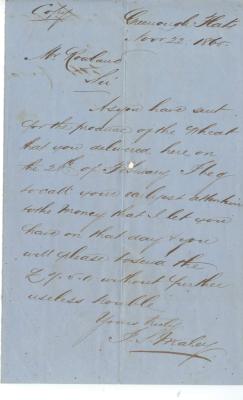 Copy
Greenough Flats
Novr 22 1865
Mr Rowland
Sir
As you have sent
for the produce of the Wheat
that you delivered here on
the 28th of February I beg
to call your earliest attention
to the Money that I let you
have on that day & you
will please to send the
£ 9.5.0 without further
useless trouble
Yours truly